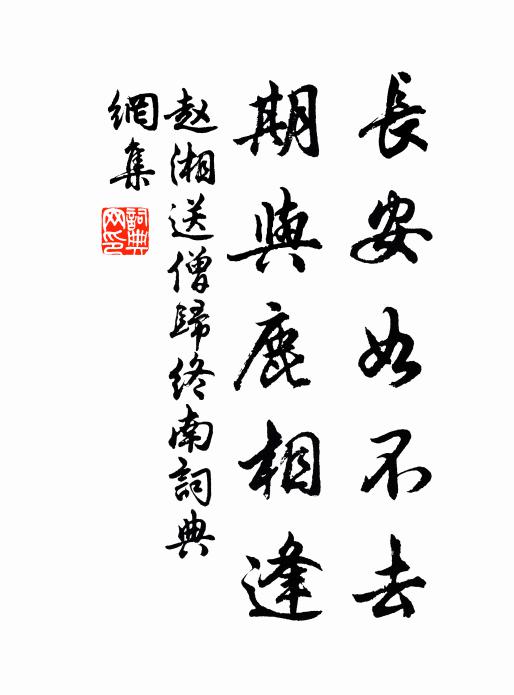 長安如不去
期與鹿相逢
赵湘送僧歸终南詞典
網集
詞典網印